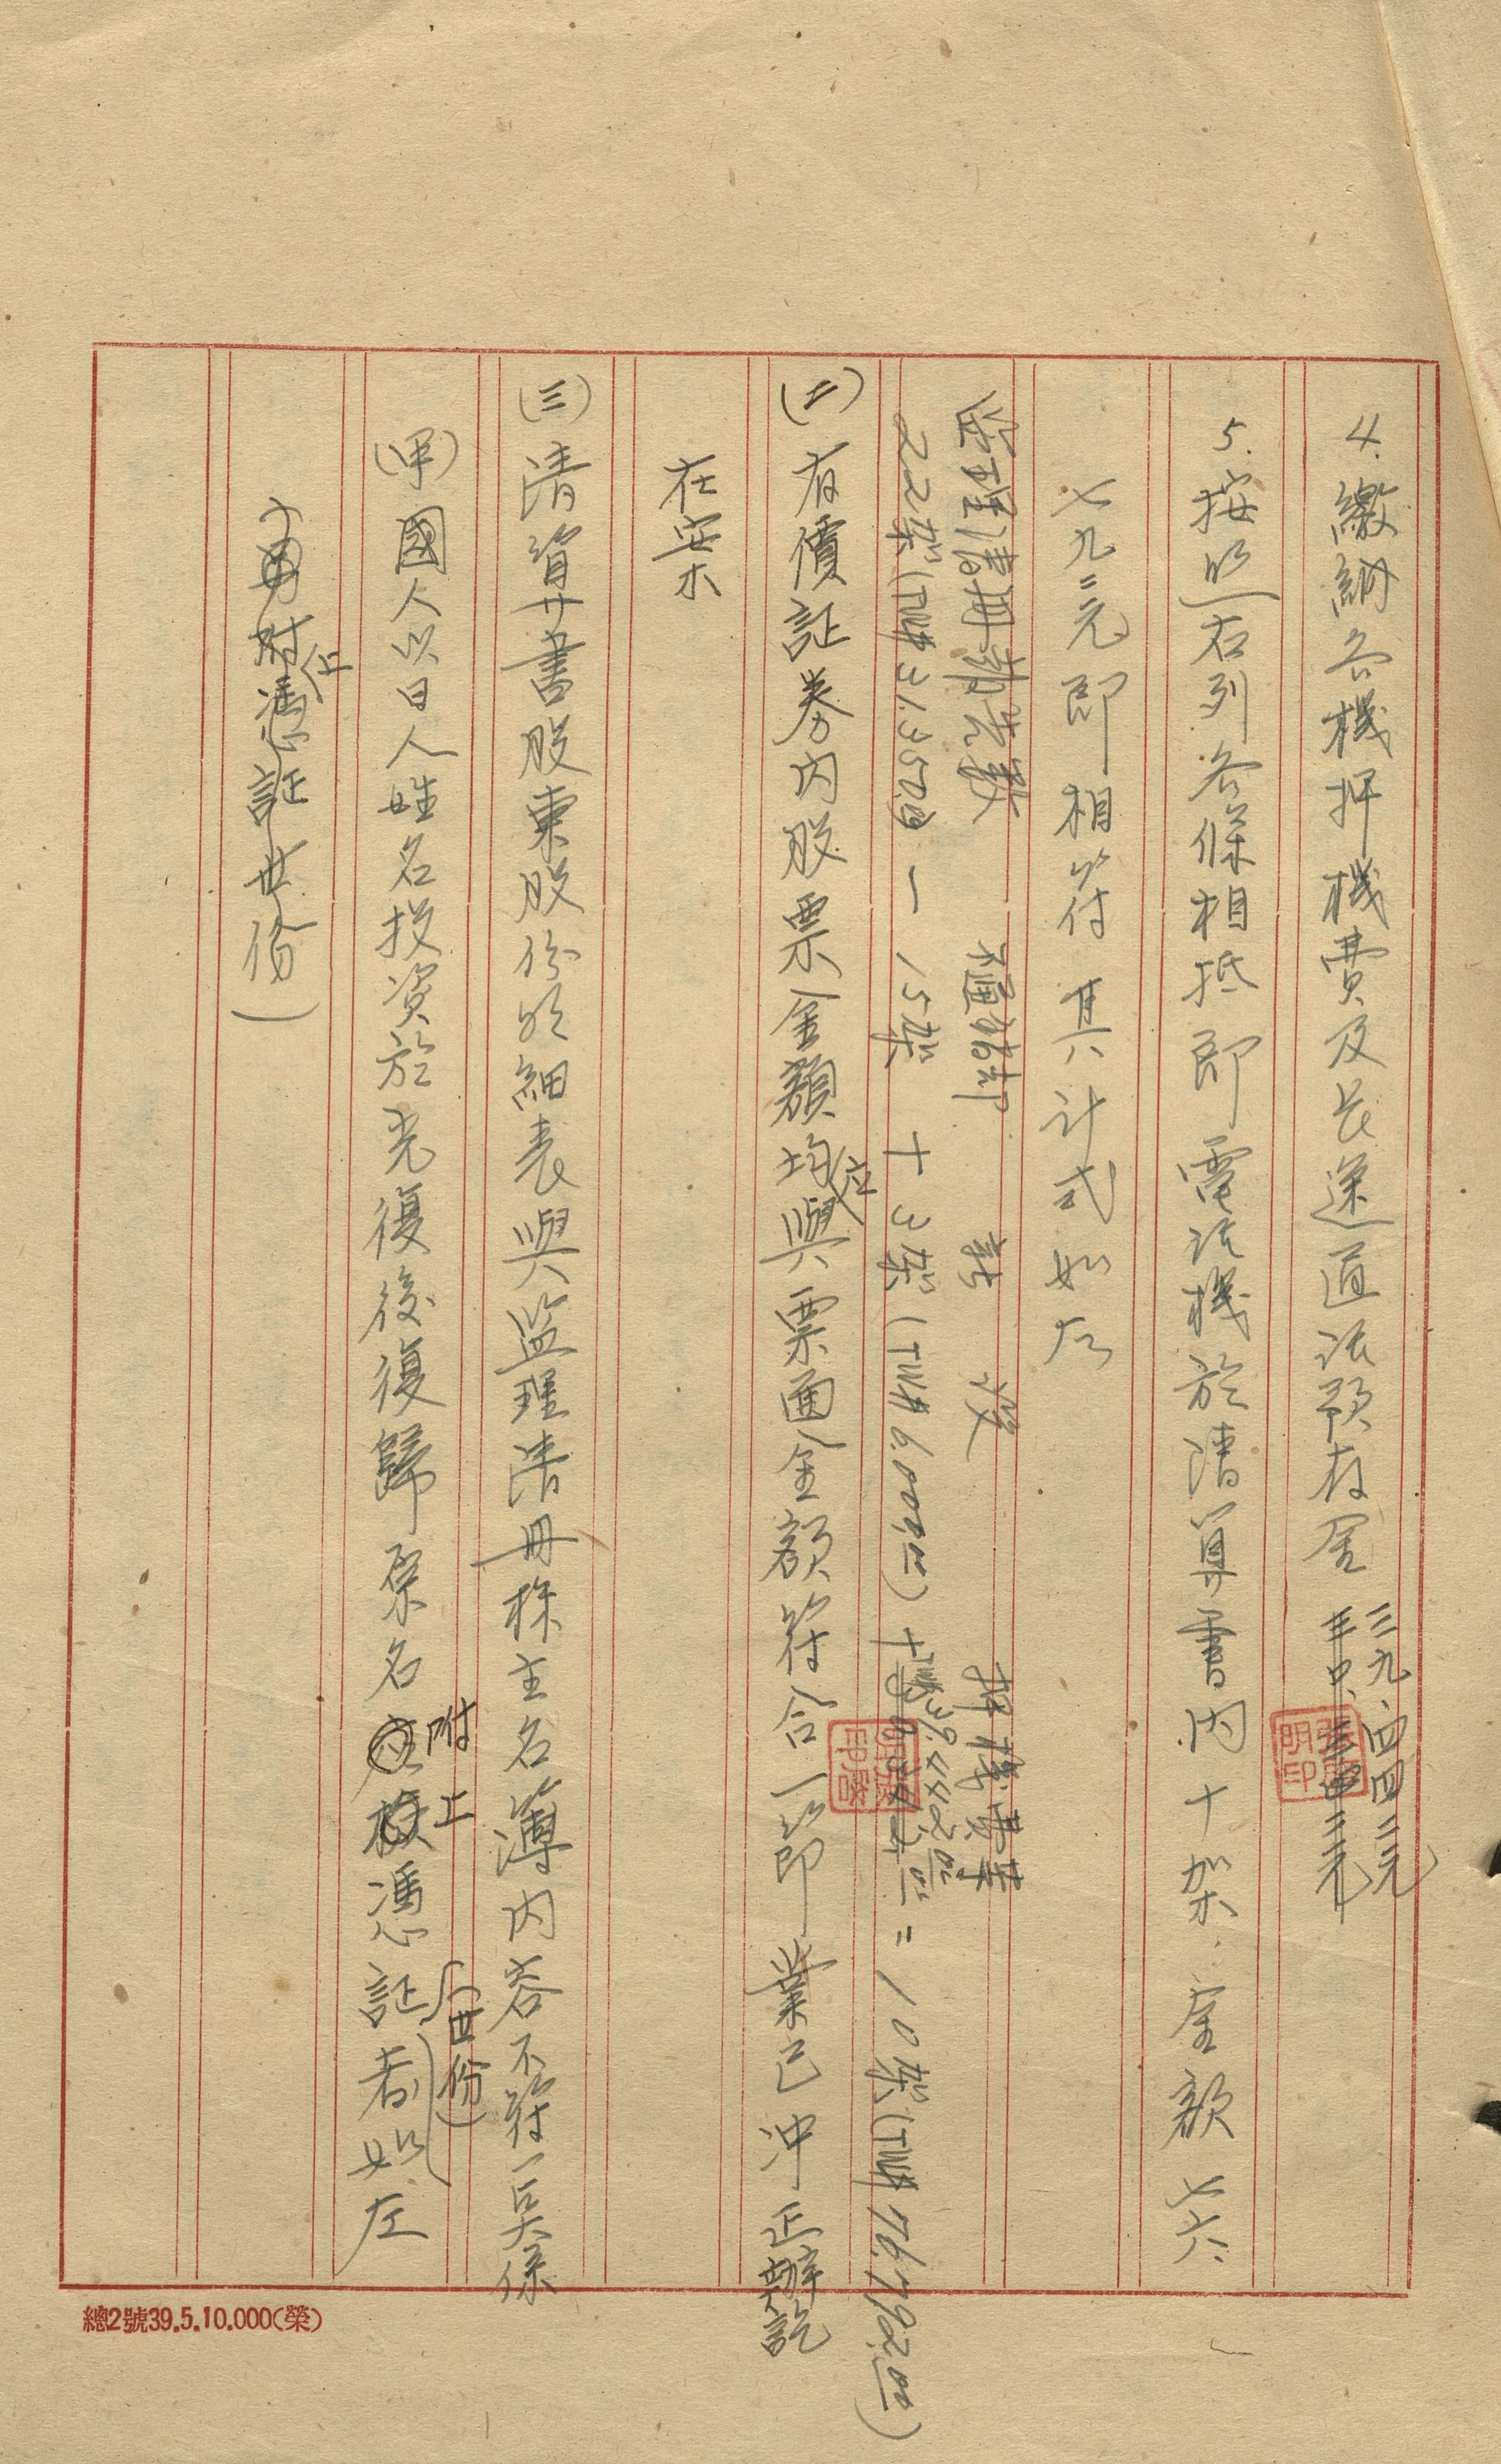 4.繳納各機押機費及長途通話預存金三九、四四二元
5.按照右列各條相抵即電話機於清算書內十架金額七六、
七九二元即相符其計式如左
監理清冊報告數 不值結部 新設 押機費等
22架(TW$31.350.00 — 15架 + 3架(TW$6.000.00)+TW$39.442.00=10架(TW$76.792.00)
(二)有價証券内股票金額均應與票面金額符合一節業已沖正辦訖
在案
(三)清算書股東股份明細表與監理清冊株主名簿内容不符一吴係
(甲)國人以日人姓名投資於光復後復歸原名附上憑証(四份)者如左
附上憑証廿份)
張明印
總2號39.5.10.000(榮)